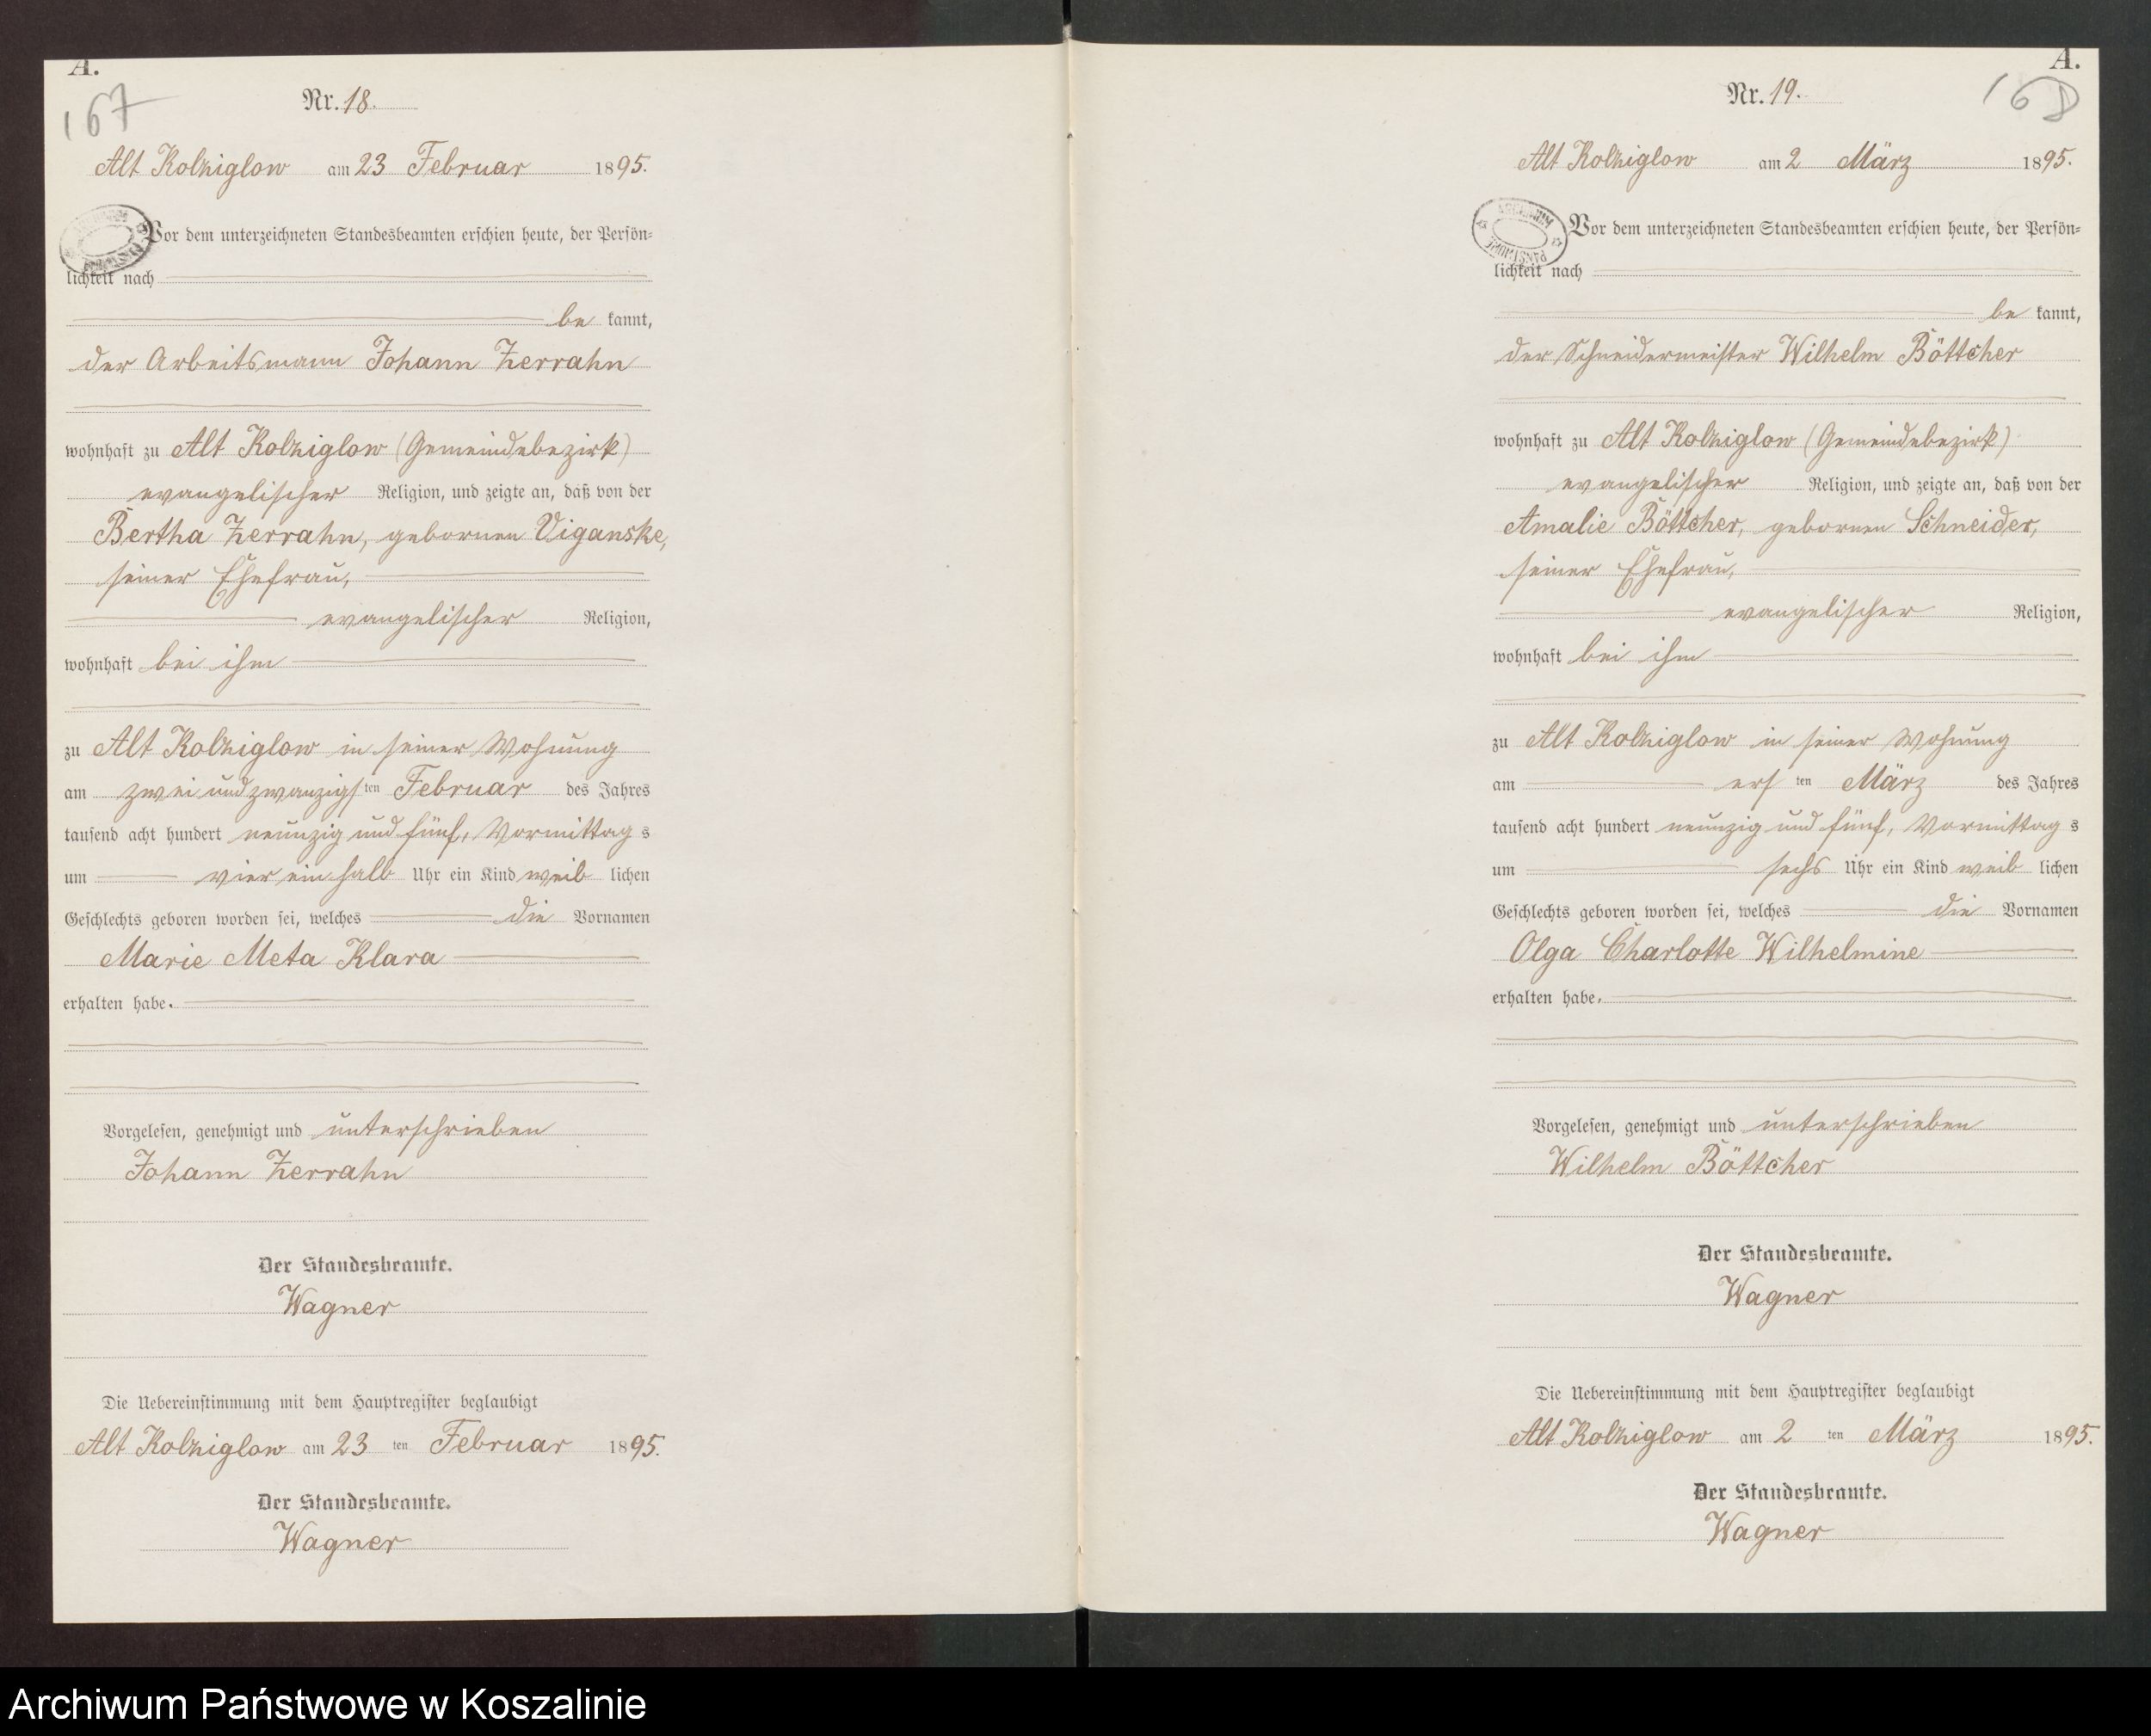 A.
167
Nr. 18.
Alt Kolziglow am 23 Februar 1895.
Vor dem unterzeichneten Standesbeamten erschien heute, der Persön=
lichkeit nach
be kannt,
der Arbeitsmann Johann Zerrahn
wohnhaft zu Alt Kolziglow (Gemeindebezirk)
evangelischer Religion, und zeigte an, daß von der
Bertha Zerrahn, gebornen Viganske,
seiner Ehefrau,
evangelischer Religion,
wohnhaft bei ihm
zu Alt Kolziglow in seiner Wohnung
am zwei und zwanzigsten Februar des Jahres
tausend acht hundert neunzig und fünf, Vormittags
um vier ein halb Uhr ein Kind weiblichen
Geschlechts geboren worden sei, welches die Vornamen
Marie Meta Klara
erhalten habe.
Vorgelesen, genehmigt und unterschrieben
Johann Zerrahn
Der Standesbeamte.
Wagner
Die Uebereinstimmung mit dem Hauptregister beglaubigt
Alt Kolziglow am 23 ten Februar 1895.
Der Standesbeamte.
Wagner
A.
168
Nr. 19.
Alt Kolziglow am 2 März 1895.
ARCHIWUM PAŃSTWOWE
Vor dem unterzeichneten Standesbeamten erschien heute, der Persön=
lichkeit nach
be kannt,
der Schneidermeister Wilhelm Böttcher
wohnhaft zu Alt Kolziglow (Gemeindebezirk)
evangelischer Religion, und zeigte an, daß von der
Amalie Böttcher, gebornen Schneider,
seiner Ehefrau,
evangelischer Religion,
wohnhaft bei ihm
zu Alt Kolziglow in seiner Wohnung
am ersten März des Jahres
tausend acht hundert neunzig und fünf, Vormittags
um sechs Uhr ein Kind weiblichen
Geschlechts geboren worden sei, welches die Vornamen
Olga Charlotte Wilhelmine
erhalten habe.
Vorgelesen, genehmigt und unterschrieben
Wilhelm Böttcher
Der Standesbeamte.
Wagner
Die Uebereinstimmung mit dem Hauptregister beglaubigt
Alt Kolziglow am 2 ten März 1895.
Der Standesbeamte.
Wagner
Archiwum Państwowe w Koszalinie